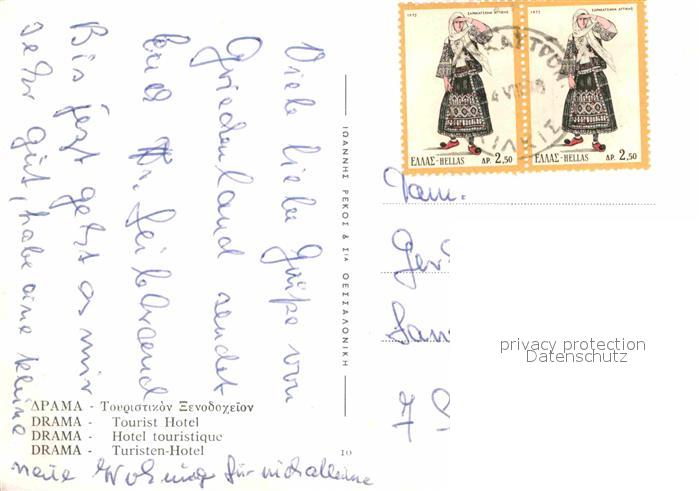 Viele liebe Grüße von
Griechenland sendet
Euch
Bis jezt getzt es mir
sehr gut, habe eine kleine
neue Wohnung für mich alleine
ΔΡΑΜΑ - Τουριστικὸν Ξενοδοχεῖον
DRAMA - Tourist Hotel
DRAMA - Hotel touristique
DRAMA - Turisten-Hotel
10
ΙΩΑΝΝΗΣ ΡΕΚΟΣ & ΣΙΑ ΘΕΣΣΑΛΟΝΙΚΗ
1972 ΣΑΡΑΚΑΤΣΑΝΑ ΑΤΤΙΚΗΣ
ΕΛΛΑΣ-HELLAS ΔΡ. 2,50
1972 ΣΑΡΑΚΑΤΣΑΝΑ ΑΤΤΙΚΗΣ
ΕΛΛΑΣ-HELLAS ΔΡ. 2,50
ΚΙΛΚΙΣ
Fam.
7
privacy protection
Datenschutz